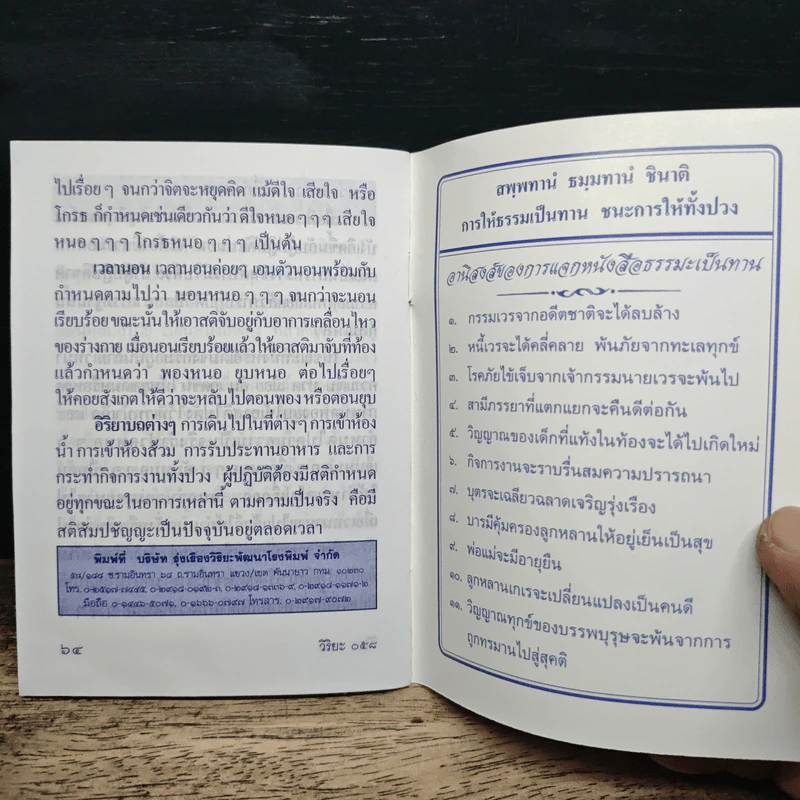 ไปเรื่อย ๆ จนกว่าจิตจะหยุดคิด แม้ดีใจ เสียใจ หรือ
โกรธ ก็กำหนดเช่นเดียวกันว่า ดีใจหนอ ๆ ๆ ๆ เสียใจ
หนอ ๆ ๆ ๆ โกรธหนอ ๆ ๆ ๆ เป็นต้น
เวลานอน เวลานอนค่อยๆ เอนตัวนอนพร้อมกับ
กำหนดตามไปว่า นอนหนอ ๆ ๆ ๆ จนกว่าจะนอน
เรียบร้อยขณะนั้นให้เอาสติจับอยู่กับอาการเคลื่อนไหว
ของร่างกาย เมื่อนอนเรียบร้อยแล้วให้เอาสติมาจับที่ท้อง
แล้วกำหนดว่า พองหนอ ยุบหนอ ต่อไปเรื่อยๆ
ให้คอยสังเกตให้ดีว่าจะหลับไปตอนพองหรือตอนยุบ
อิริยาบถต่างๆ การเดินไปในที่ต่างๆ การเข้าห้อง
น้ำ การเข้าห้องส้วม การรับประทานอาหาร และการ
กระทำกิจการงานทั้งปวง ผู้ปฏิบัติต้องมีสติกำหนด
อยู่ทุกขณะในอาการเหล่านี้ ตามความเป็นจริง คือมี
สติสัมปชัญญะเป็นปัจจุบันอยู่ตลอดเวลา
พิมพ์ที่ บริษัท รุ่งเรืองวิริยะพัฒนาโรงพิมพ์ จำกัด
๕๘/๑๘๘ ซ.รามอินทรา ๖๘ ถ.รามอินทรา แขวง/เขต คันนายาว กทม. ๑๐๒๓๐
โทร.
มือถือ ๐-๑๔๔๖-๕๐๗๑, ๐-๑๖๖๖-๐๗๙๗ โทรสาร. ๐-๒๙๑๗-๙๐๗๒
๖๔
วิริยะ ๐๕๘
สพฺพทานํ ธมฺมทานํ ชินาติ
การให้ธรรมเป็นทาน ชนะการให้ทั้งปวง
อานิสงส์ของการแจกหนังสือธรรมะเป็นทาน
๑. กรรมเวรจากอดีตชาติจะได้ลบล้าง
๒. หนี้เวรจะได้คลี่คลาย พ้นภัยจากทะเลทุกข์
๓. โรคภัยไข้เจ็บจากเจ้ากรรมนายเวรจะพ้นไป
๔. สามีภรรยาที่แตกแยกจะคืนดีต่อกัน
๕. วิญญาณของเด็กที่แท้งในท้องจะได้ไปเกิดใหม่
๖. กิจการงานจะราบรื่นสมความปรารถนา
๗. บุตรจะเฉลียวฉลาดเจริญรุ่งเรือง
๘. บารมีคุ้มครองลูกหลานให้อยู่เย็นเป็นสุข
๙. พ่อแม่จะมีอายุยืน
๑๐. ลูกหลานเกเรจะเปลี่ยนแปลงเป็นคนดี
๑๑. วิญญาณทุกข์ของบรรพบุรุษจะพ้นจากการ
ถูกทรมานไปสู่สุคติ